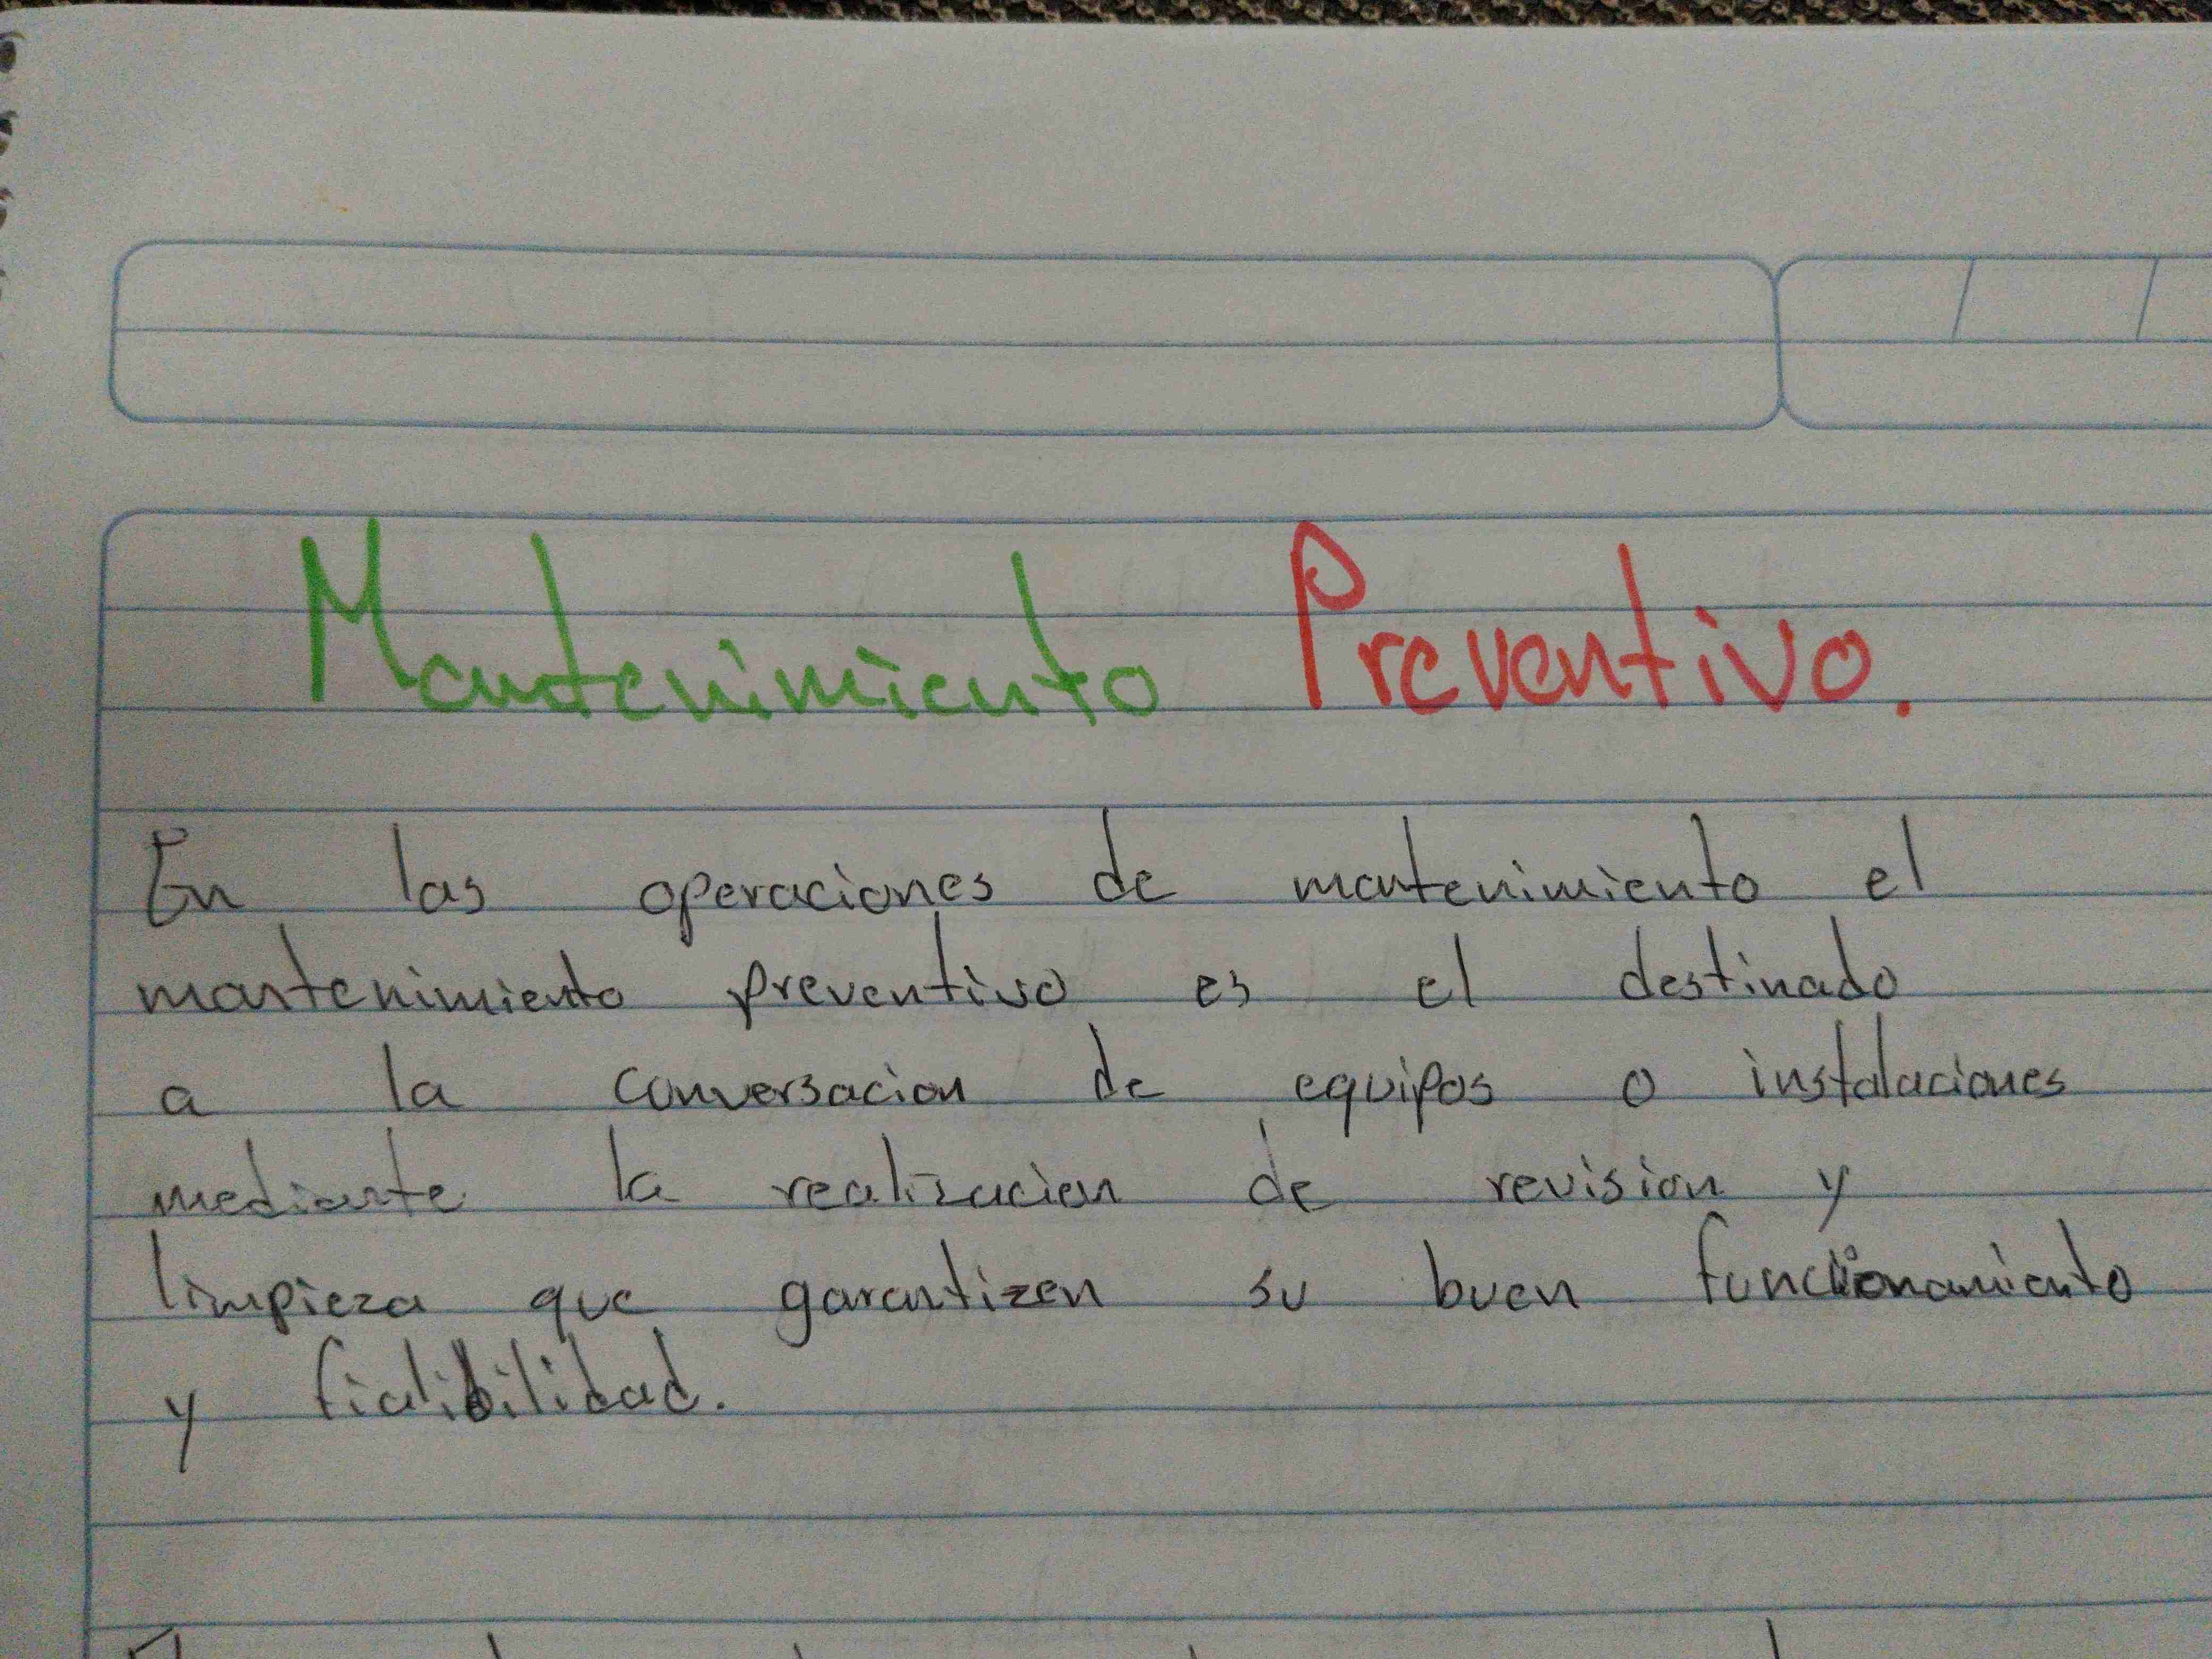 Mantenimiento Preventivo.
En las operaciones de mantenimiento el
mantenimiento preventivo es el destinado
a la conversacion de equipos o instalaciones
mediante la realizacion de revision y
limpieza que garantizen su buen funcionamiento
y fialibilidad.